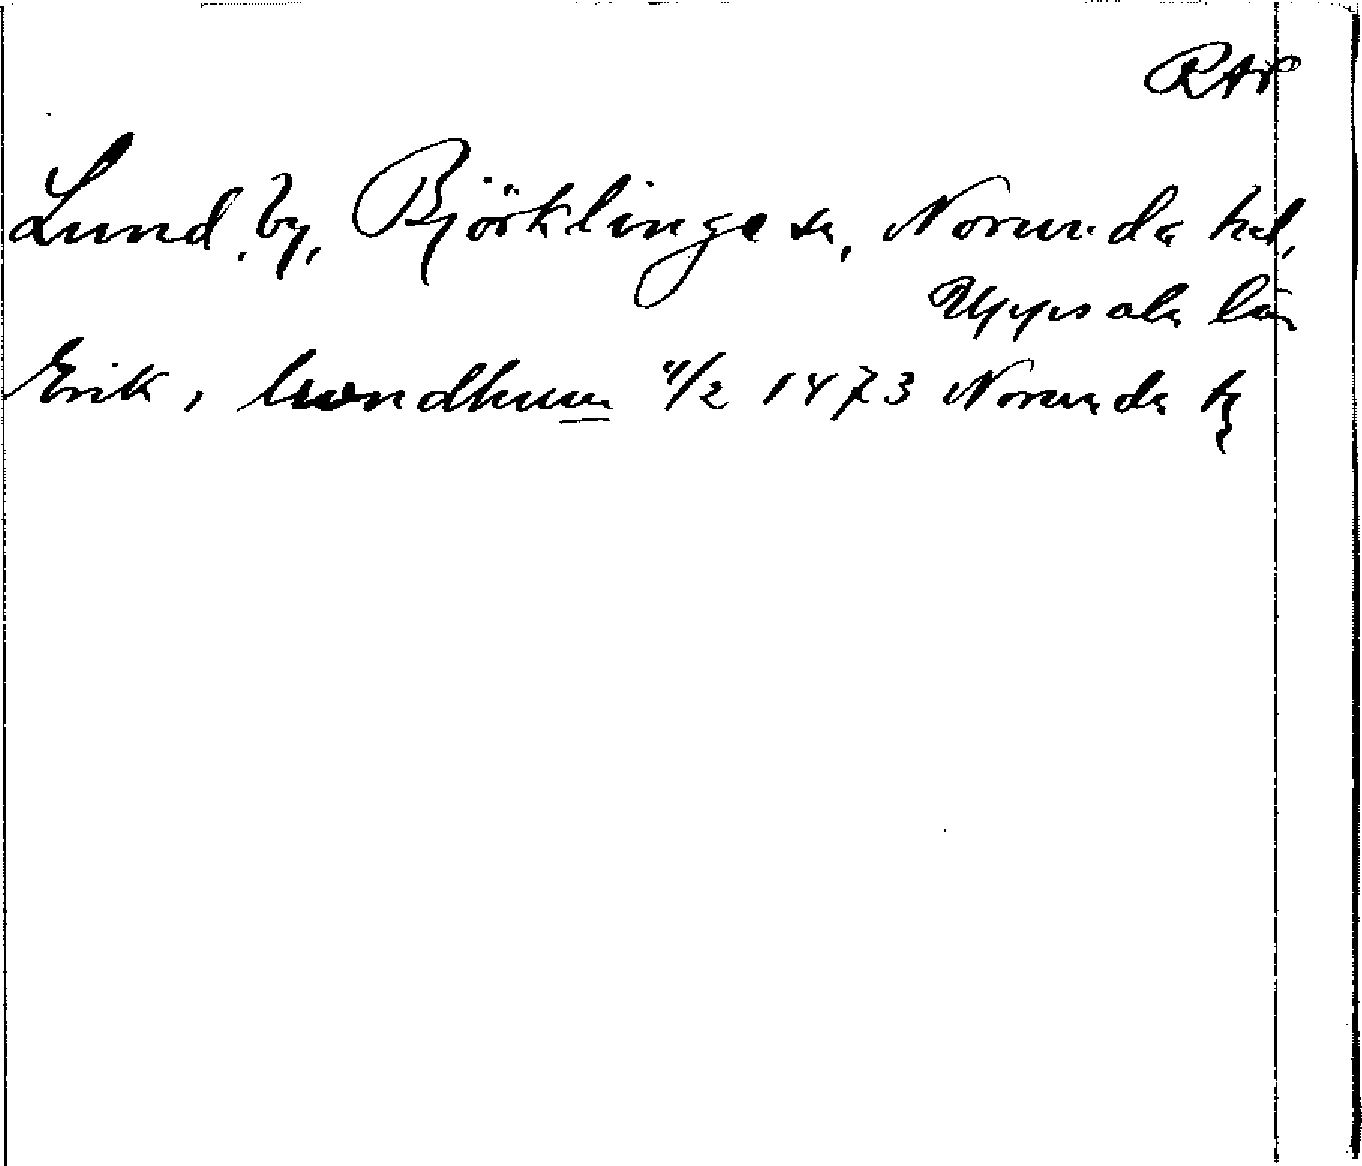 RAP
Lund, by, Björklinge sn, Norunda hd,
Uppsala län
Erik i lwndhum 11/2 1473 Norunda